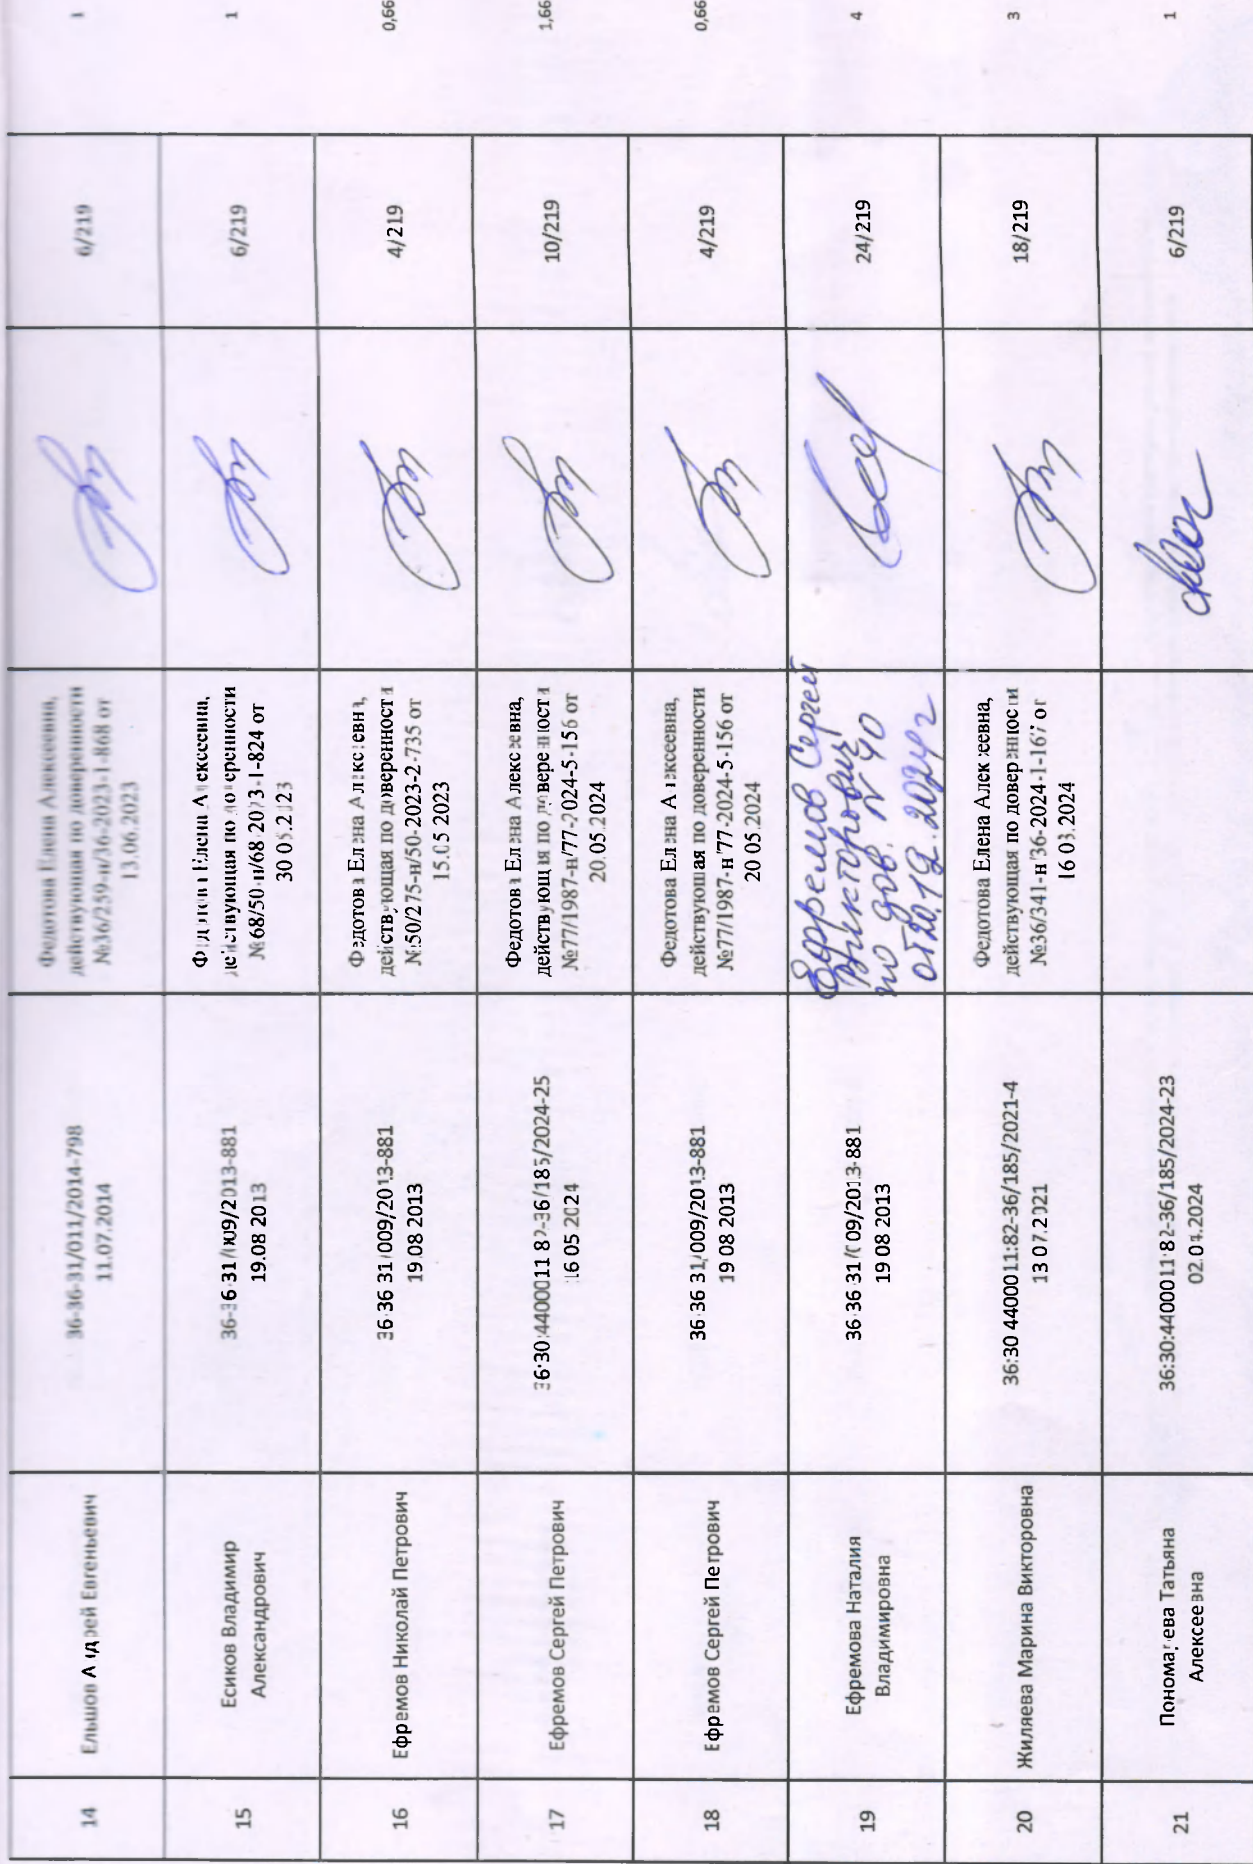 14
Ельшов Андрей Евгеньевич
36-36-31/011/2014-798
11.07.2014
Федотова Елена Алексеевна,
действующая по доверенности
№36/259-н/36-2023-1-868 от
13.06.2023
6/219
1
15
Есиков Владимир
Александрович
36-36-31/009/2013-881
19.08 2013
Федотова Елена Алексеевна,
действующая по доверенности
№68/50-н/68-2023-1-824 от
30 05.2023
6/219
1
16
Ефремов Николай Петрович
36-36 31/009/2013-881
19.08 2013
Федотова Елена Алексеевна,
действующая по доверенности
№50/275-н/50-2023-2-735 от
15.05 2023
4/219
0,66
17
Ефремов Сергей Петрович
36:30:4400011 82-36/185/2024-25
16 05 2024
Федотова Елена Алексеевна,
действующая по доверенности
№77/1987-н/77-2024-5-156 от
20.05.2024
10/219
1,66
18
Ефремов Сергей Петрович
36-36 31/009/2013-881
19 08 2013
Федотова Елена Алексеевна,
действующая по доверенности
№77/1987-н/77-2024-5-156 от
20 05.2024
4/219
0,66
19
Ефремова Наталия
Владимировна
36-36-31/009/2013-881
19 08 2013
Ефремов Сергей
Викторович
по дов. №40
от 20.12.2024г
24/219
4
20
Жиляева Марина Викторовна
36:30 4400011:82-36/185/2021-4
13 07.2021
Федотова Елена Алексеевна,
действующая по доверенности
№36/341-н/36-2024-1-167 от
16 03.2024
18/219
3
21
Пономарева Татьяна
Алексеевна
36:30:4400011:82-36/185/2024-23
02.04.2024
6/219
1